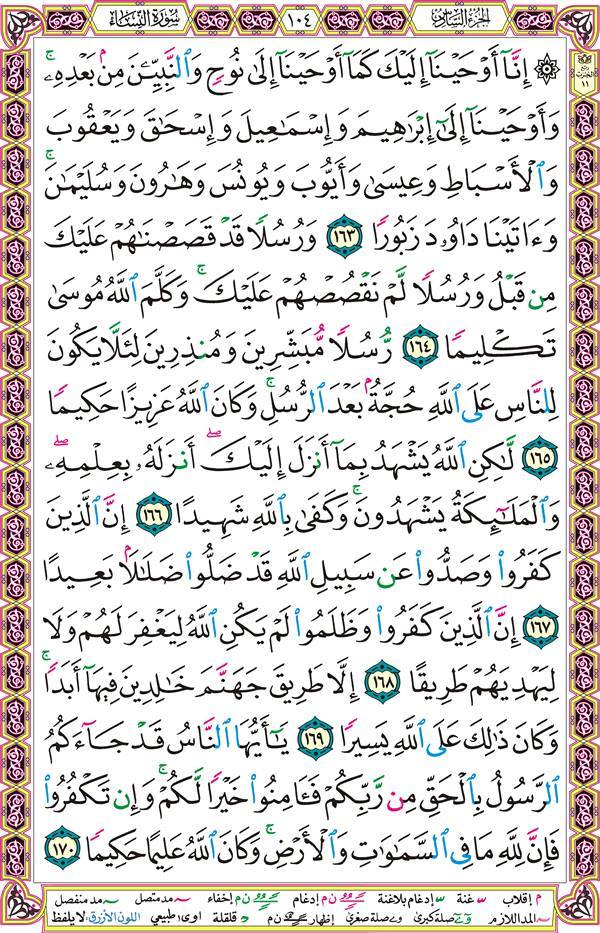 الجزء السادس ١٠٤ سورة النساء
ربع الحزب ١١
۞ إِنَّآ أَوْحَيْنَآ إِلَيْكَ كَمَآ أَوْحَيْنَآ إِلَىٰ نُوحٍ وَٱلنَّبِيِّـۧنَ مِنۢ بَعْدِهِۦۚ
وَأَوْحَيْنَآ إِلَىٰٓ إِبْرَٰهِيمَ وَإِسْمَٰعِيلَ وَإِسْحَٰقَ وَيَعْقُوبَ
وَٱلْأَسْبَاطِ وَعِيسَىٰ وَأَيُّوبَ وَيُونُسَ وَهَٰرُونَ وَسُلَيْمَٰنَۚ
وَءَاتَيْنَا دَاوُۥدَ زَبُورًا ١٦٣ وَرُسُلًا قَدْ قَصَصْنَٰهُمْ عَلَيْكَ
مِن قَبْلُ وَرُسُلًا لَّمْ نَقْصُصْهُمْ عَلَيْكَۚ وَكَلَّمَ ٱللَّهُ مُوسَىٰ
تَكْلِيمًا ١٦٤ رُّسُلًا مُّبَشِّرِينَ وَمُنذِرِينَ لِئَلَّا يَكُونَ
لِلنَّاسِ عَلَى ٱللَّهِ حُجَّةٌۢ بَعْدَ ٱلرُّسُلِۚ وَكَانَ ٱللَّهُ عَزِيزًا حَكِيمًا
١٦٥ لَّٰكِنِ ٱللَّهُ يَشْهَدُ بِمَآ أَنزَلَ إِلَيْكَۖ أَنزَلَهُۥ بِعِلْمِهِۦۖ
وَٱلْمَلَٰٓئِكَةُ يَشْهَدُونَۚ وَكَفَىٰ بِٱللَّهِ شَهِيدًا ١٦٦ إِنَّ ٱلَّذِينَ
كَفَرُوا۟ وَصَدُّوا۟ عَن سَبِيلِ ٱللَّهِ قَدْ ضَلُّوا۟ ضَلَٰلًۢا بَعِيدًا
١٦٧ إِنَّ ٱلَّذِينَ كَفَرُوا۟ وَظَلَمُوا۟ لَمْ يَكُنِ ٱللَّهُ لِيَغْفِرَ لَهُمْ وَلَا
لِيَهْدِيَهُمْ طَرِيقًا ١٦٨ إِلَّا طَرِيقَ جَهَنَّمَ خَٰلِدِينَ فِيهَآ أَبَدًاۚ
وَكَانَ ذَٰلِكَ عَلَى ٱللَّهِ يَسِيرًا ١٦٩ يَٰٓأَيُّهَا ٱلنَّاسُ قَدْ جَآءَكُمُ
ٱلرَّسُولُ بِٱلْحَقِّ مِن رَّبِّكُمْ فَـَٔامِنُوا۟ خَيْرًا لَّكُمْۚ وَإِن تَكْفُرُوا۟
فَإِنَّ لِلَّهِ مَا فِى ٱلسَّمَٰوَٰتِ وَٱلْأَرْضِۚ وَكَانَ ٱللَّهُ عَلِيمًا حَكِيمًا ١٧٠
م إقلاب غنة إدغام بلاغنة ن م إدغام ن م إخفاء مد متصل مد منفصل
المد اللازم صلة كبرى صلة صغرى إظهار ن م قلقلة اوى طبيعي اللون الأزرق: لا يلفظ